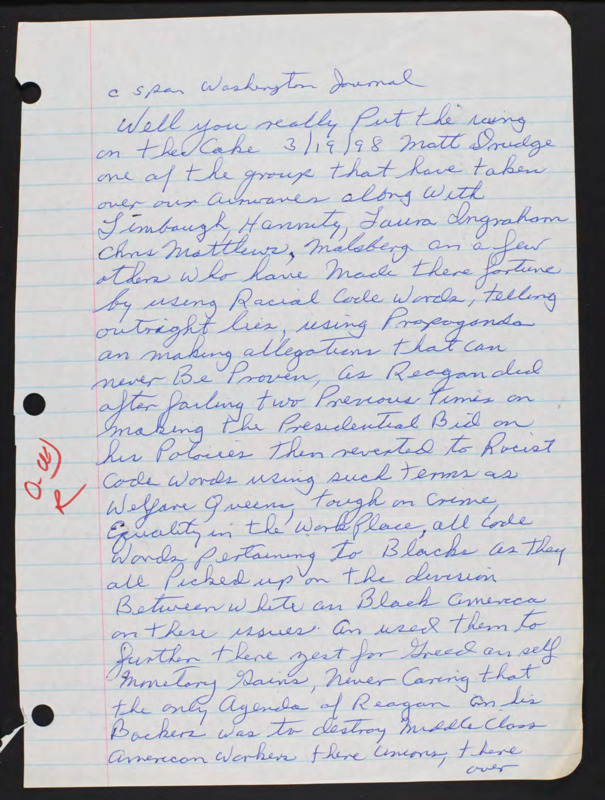 c span Washington Journal
Well you really Put the icing
on thee Cake 3/19/98 Matt Drudge
one of the group that have taken
over our airwaves along With
Limbaugh, Hannity, Laura Ingraham
Chris Matthews, Malsberg an a few
others who have Made there fortune
by using Racial Code Words, telling
outright lies, using Propoganda
an making allegations that can
never Be Proven, as Reagan did
after failing two Previous Times on
making the Presidential Bid on
his Polocies then reverted to Racist
Code Words using such Terms as
Welfare Queens, tough on Crime,
Equality in the WorkPlace, all Code
Words Pertaining to Blacks as they
all Picked up on the division
Between white an Black America
on these issues an used them to
further there zest for Greed an self
Monetary Gains, Never Caring that
the only Agenda of Reagan an his
Backers was to destroy Middle Class
American Workers there Unions, there
over
R